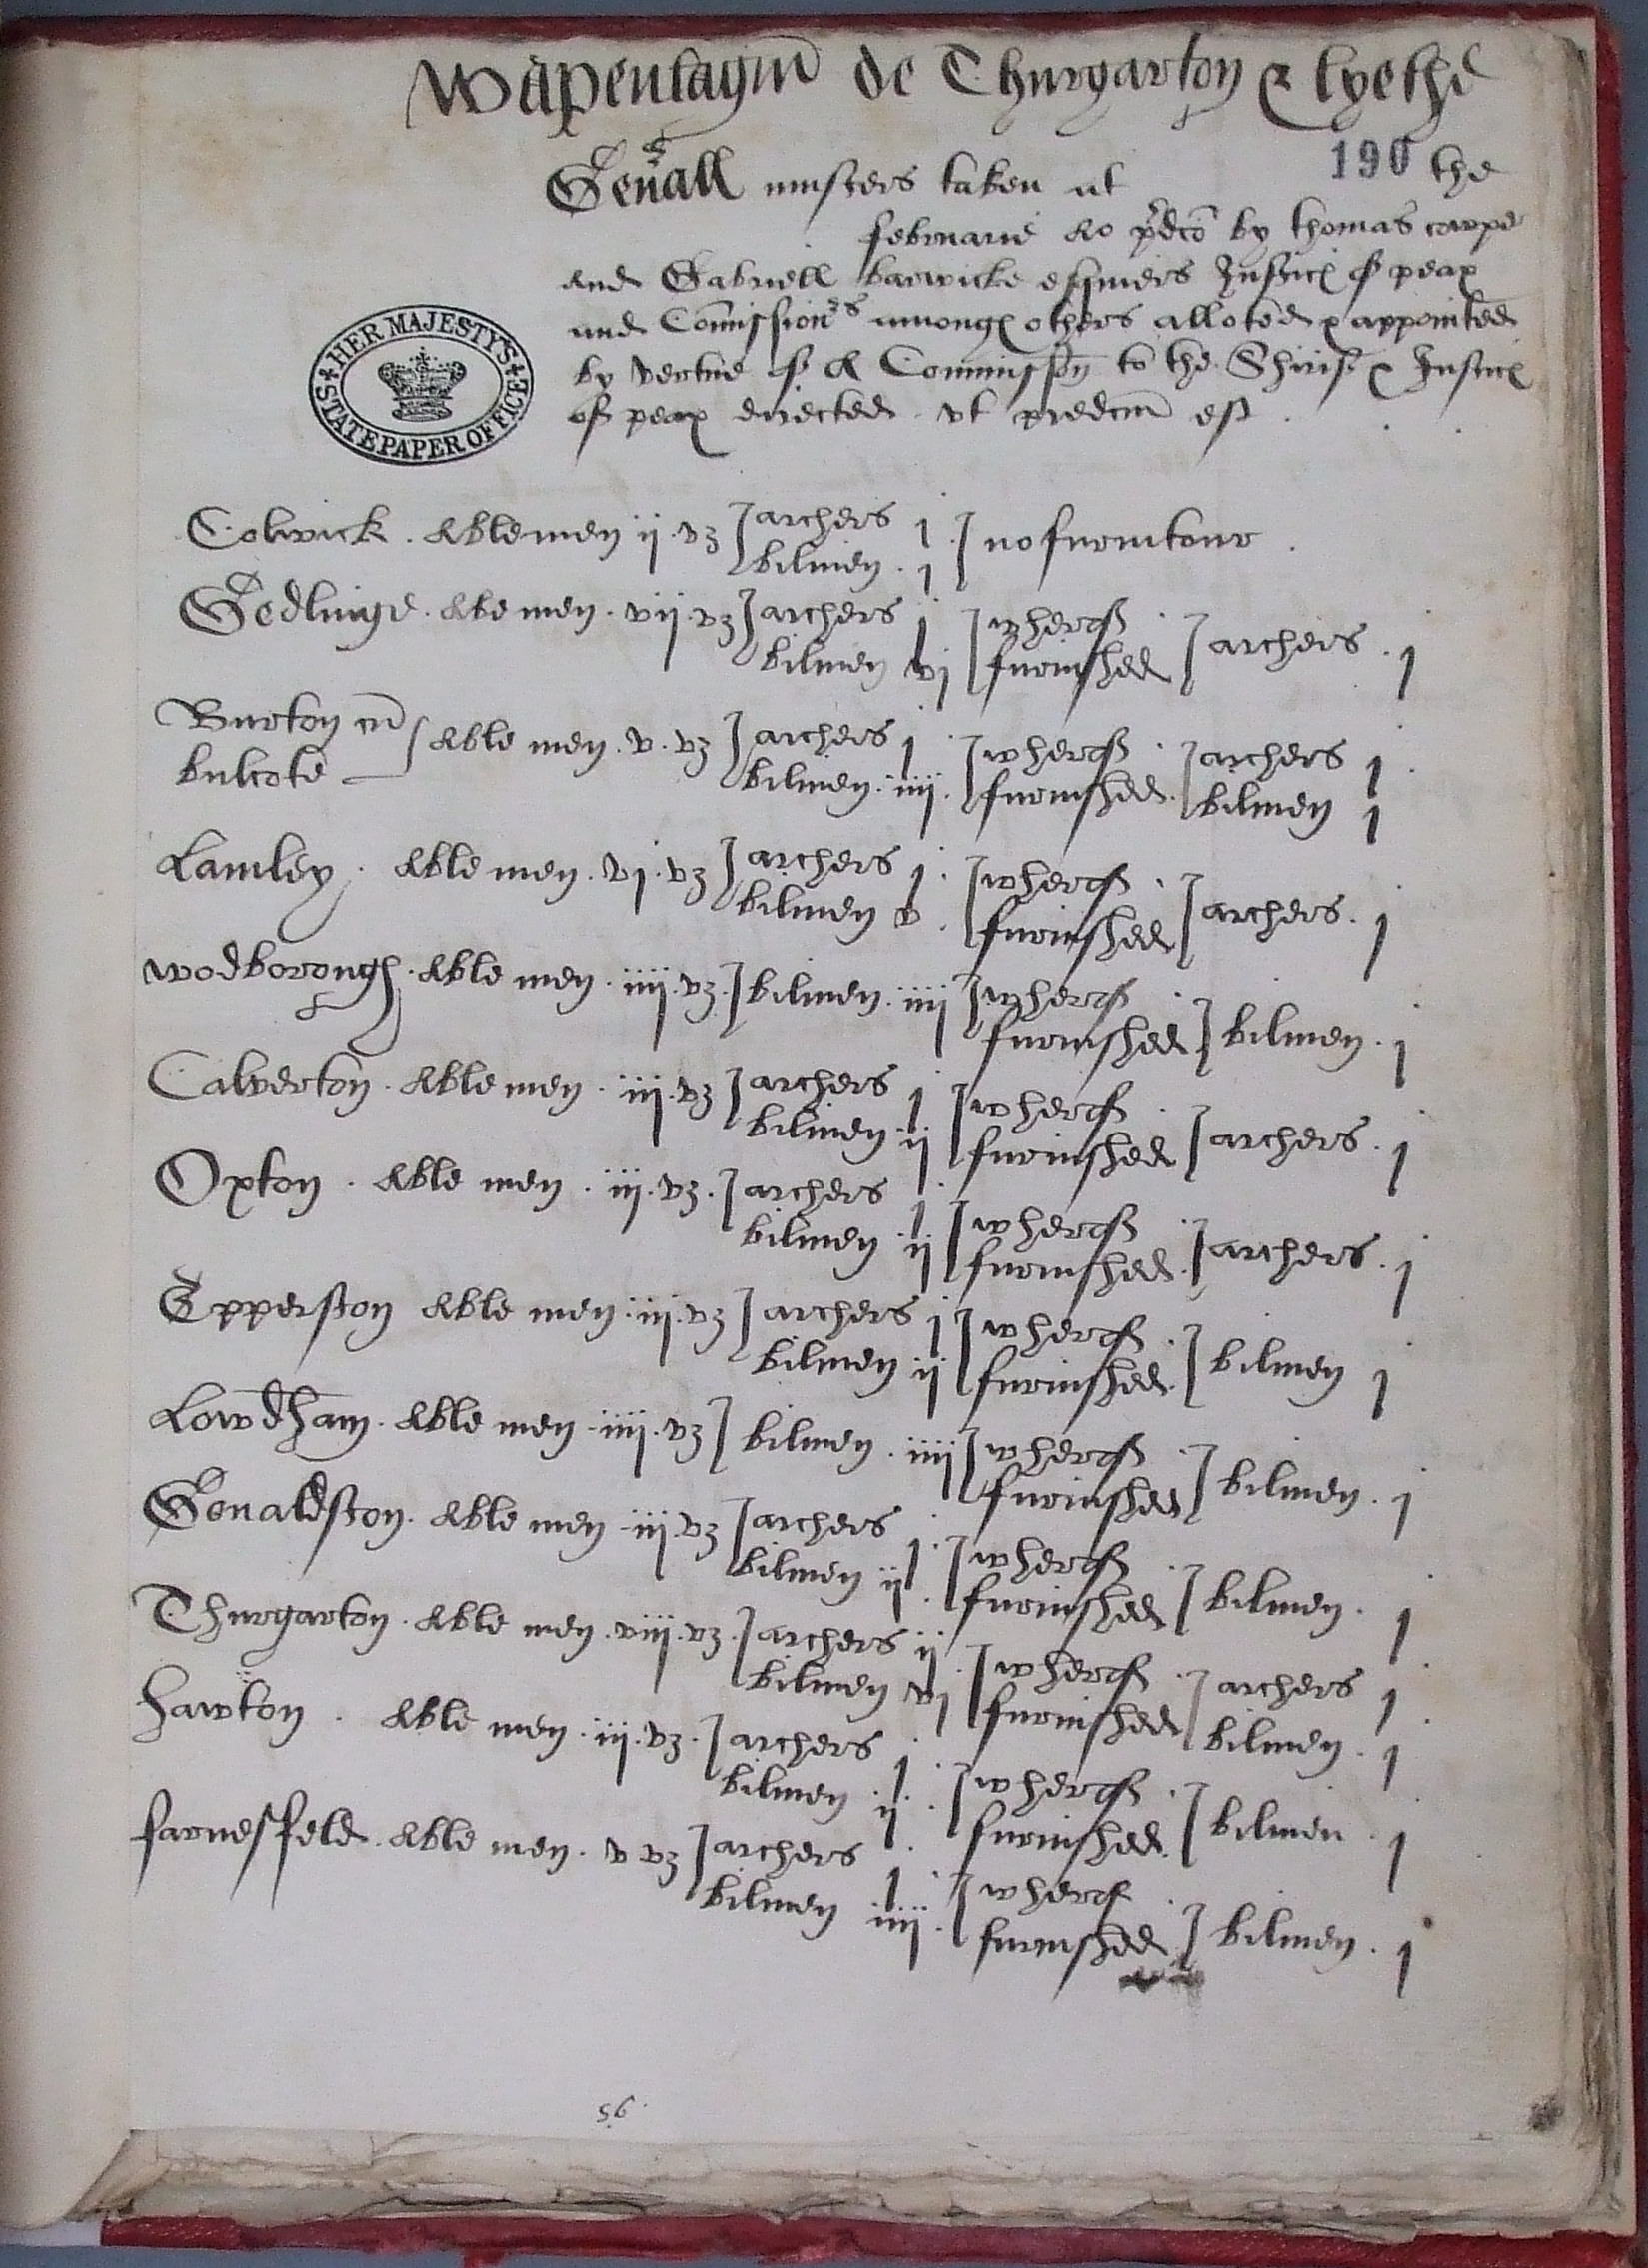 Wapentagiū de Thurgarton & lyethe
190
Gen̄all musters taken at the
februarie Ao p̄dc̄o by thomas cowper
And Gabriell barwicke esquiers Justic of peax
and Com̄ission̄s amongs others alloted & appointed
by vertue of A Commission to the Shirif & Justics
of peax directed vt predcm̄ est.
HER MAJESTY'S
STATE PAPER OFFICE
Colwick . Ablemen ij . vz archers j no furnitour .
bilmen . j
Gedlinge . Able men . vij . vz archers j wherof archers . j
bilmen vj furnished
Burton cū Able men . v . vz archers j wherof archers j
bulcote bilmen . iiij . furnished . bilmen j
Lamley . Able men . vj . vz archers j wherof archers . j
bilmen v . furnished
wodborough . Able men . iiij . vz . bilmen . iiij wherof bilmen . j
furnished
Calverton . Able men . iij . vz archers j wherof archers . j
bilmen ij furnished
Oxton . Able men . iij . vz . archers j wherof archers . j
bilmen ij furnished .
Epperston Able men . iij . vz archers j wherof bilmen j
bilmen ij furnished .
Lowdham . Able men . iiij . vz bilmen . iiij wherof bilmen . j
furnished
Gonaldston . Able men . iij . vz archers j wherof bilmen . j
bilmen ij . furnished
Thurgarton . Able men . viij . vz . archers ij wherof archers j
bilmen vj furnished bilmen . j
hawton . Able men . iij . vz . archers j wherof bilmen . j
bilmen ij . furnished .
farnesfeld . Able men . v vz archers j wherof bilmen . j
bilmen iiij . furnished
56 .